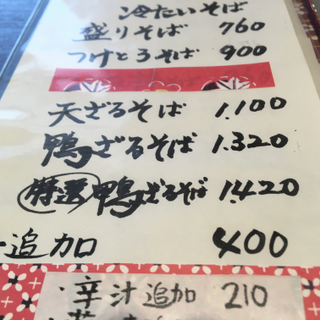 冷たいそば
盛りそば 760
つけとろそば 900
天ざるそば 1.100
鴨ざるそば 1.320
特選鴨ざるそば 1.420
追加 400
・辛汁追加 210